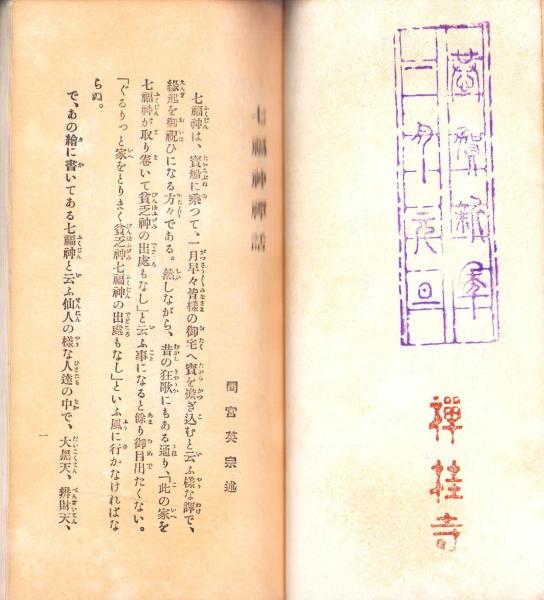 恭賀新年
一月元旦
禪桂寺
七福神禪話
間宮英宗述
七福神は、寳船に乘つて、一月早々皆樣の御宅へ寳を擔ぎ込むと云ふ樣な譯で、
緣起を御祝ひになる方々である。然しながら、昔の狂歌にもある通り、「此の家を
七福神が取り卷いて貧乏神の出處もなし」と云ふ事になると餘り御目出たくない。
「ぐるりつと家をとりまく貧乏神七福神の出處もなし」といふ風に行かなければな
らぬ。
で、あの繪に書いてある七福神と云ふ仙人の樣な人達の中で、大黑天、辨財天、
一